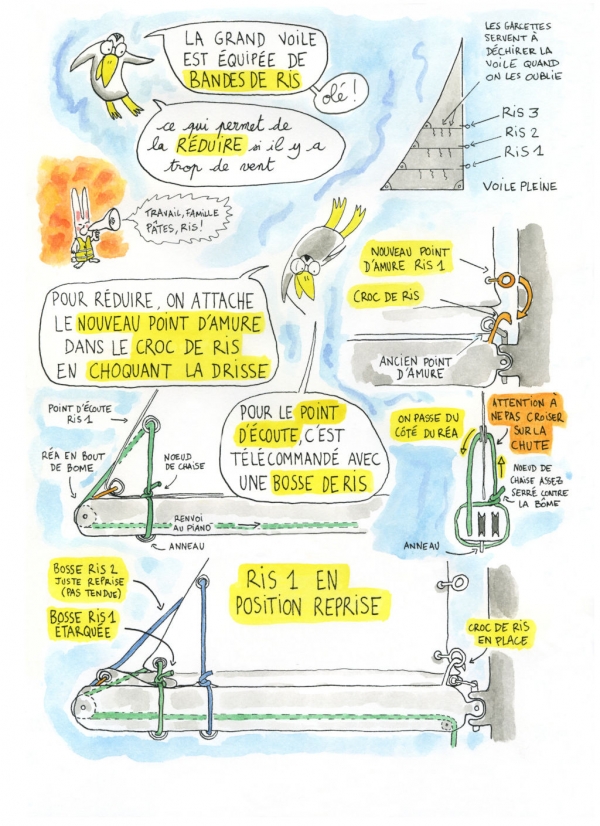 LA GRAND VOILE
EST ÉQUIPÉE DE
BANDES DE RIS
olé !
ce qui permet de
la RÉDUIRE si il y a
trop de vent
LES GARCETTES
SERVENT À
DÉCHIRER LA
VOILE QUAND
ON LES OUBLIE
RIS 3
RIS 2
RIS 1
VOILE PLEINE
TRAVAIL, FAMILLE
PÂTES, RIS !
POUR RÉDUIRE, ON ATTACHE
LE NOUVEAU POINT D'AMURE
DANS LE CROC DE RIS
EN CHOQUANT LA DRISSE
NOUVEAU POINT
D'AMURE RIS 1
CROC DE RIS
ANCIEN POINT
D'AMURE
POINT D'ÉCOUTE
RIS 1
RÉA EN BOUT
DE BOME
NOEUD
DE CHAISE
RENVOI
AU PIANO
ANNEAU
POUR LE POINT
D'ÉCOUTE, C'EST
TÉLÉCOMMANDÉ AVEC
UNE BOSSE DE RIS
ON PASSE DU
CÔTÉ DU RÉA
ATTENTION À
NE PAS CROISER
SUR LA
CHUTE
NOEUD DE
CHAISE ASSEZ
SERRÉ CONTRE
LA BÔME
ANNEAU
BOSSE RIS 2
JUSTE REPRISE
(PAS TENDUE)
BOSSE RIS 1
ÉTARQUÉE
RIS 1 EN
POSITION REPRISE
CROC DE RIS
EN PLACE